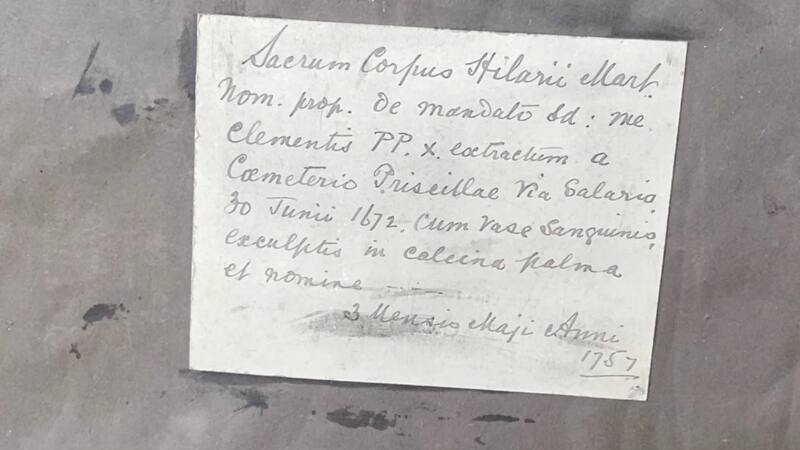 Sacrum Corpus Hilarii Mart.
Nom. prop. de mandato Sd: me
Clementis PP. X. extractum a
Cœmeterio Priscillae Via Salaria
30 Junii 1672. Cum Vase Sanguinis,
exculptis in calcina palma
et nomine
3 Mensis Maji Anni
1757